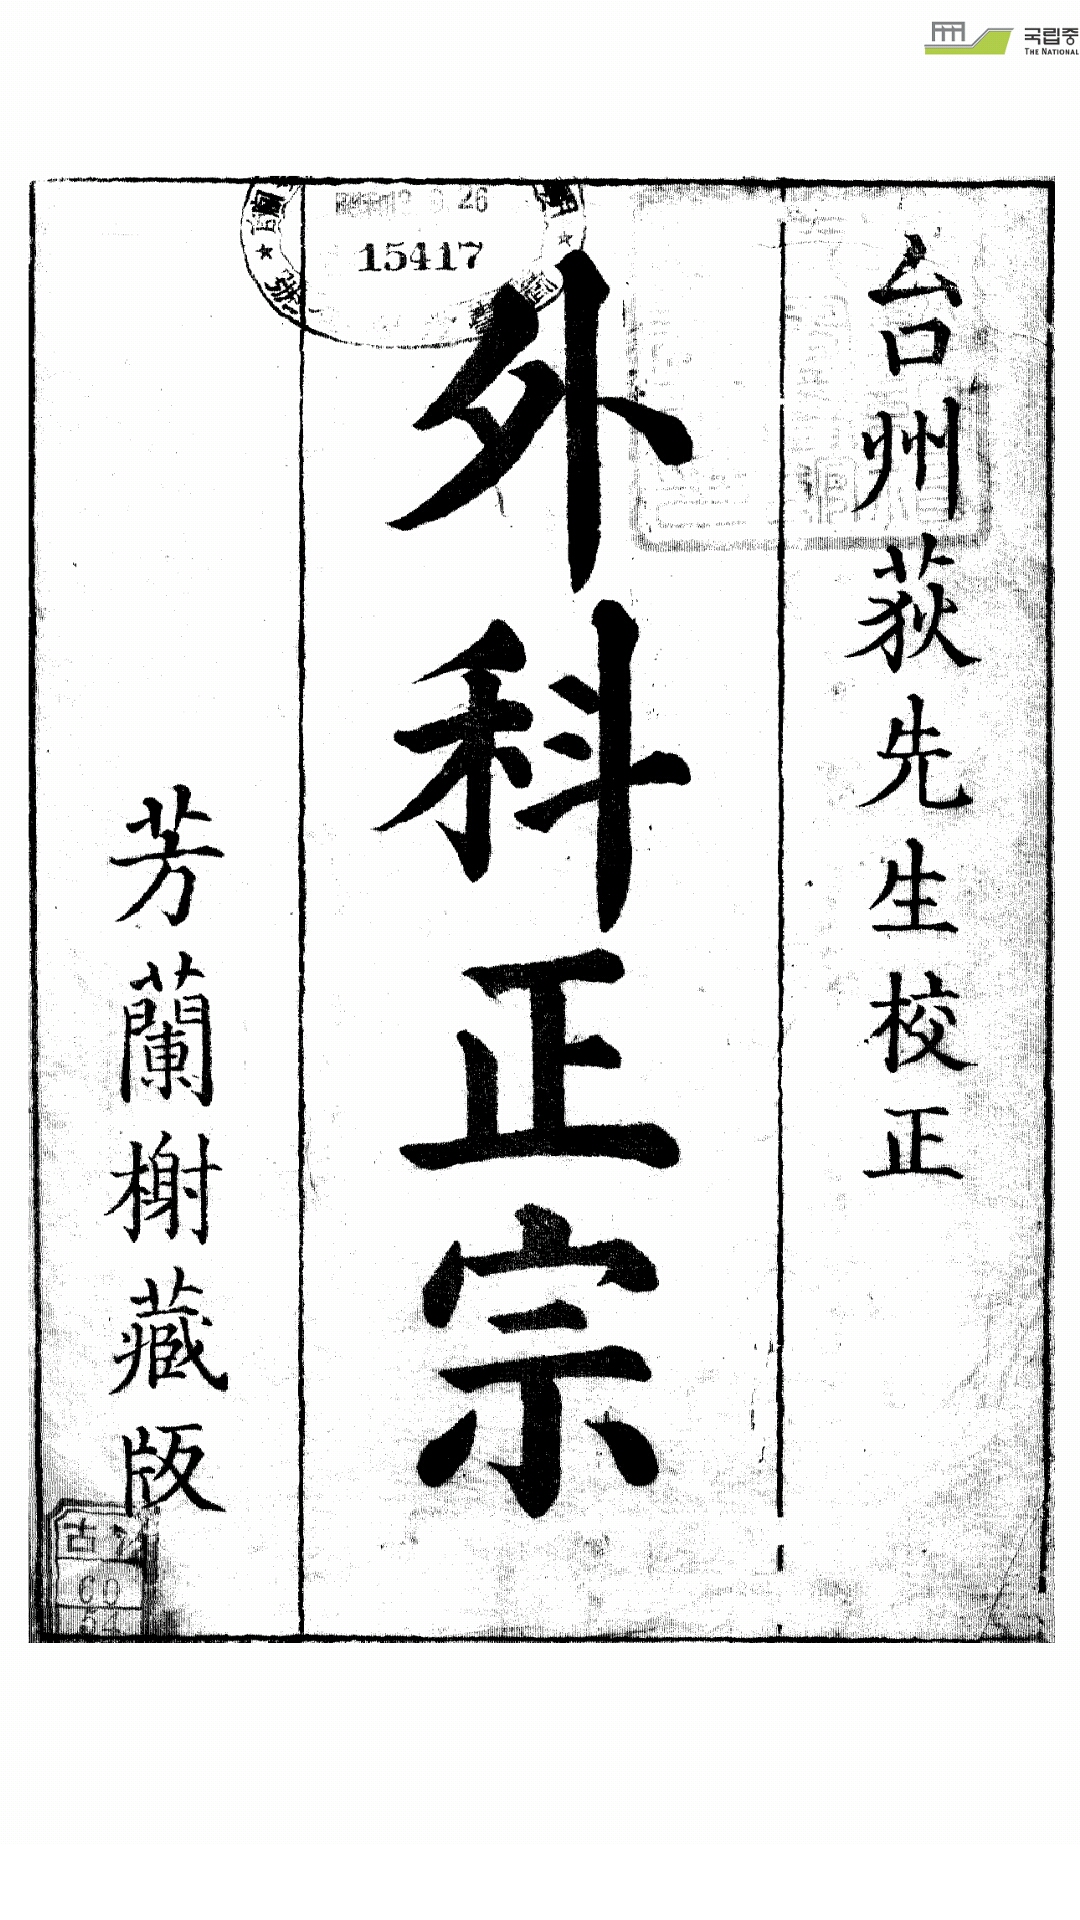 국립중
THE NATIONAL
台州荻先生校正
外科正宗
芳蘭榭藏版
15417
26
古
60